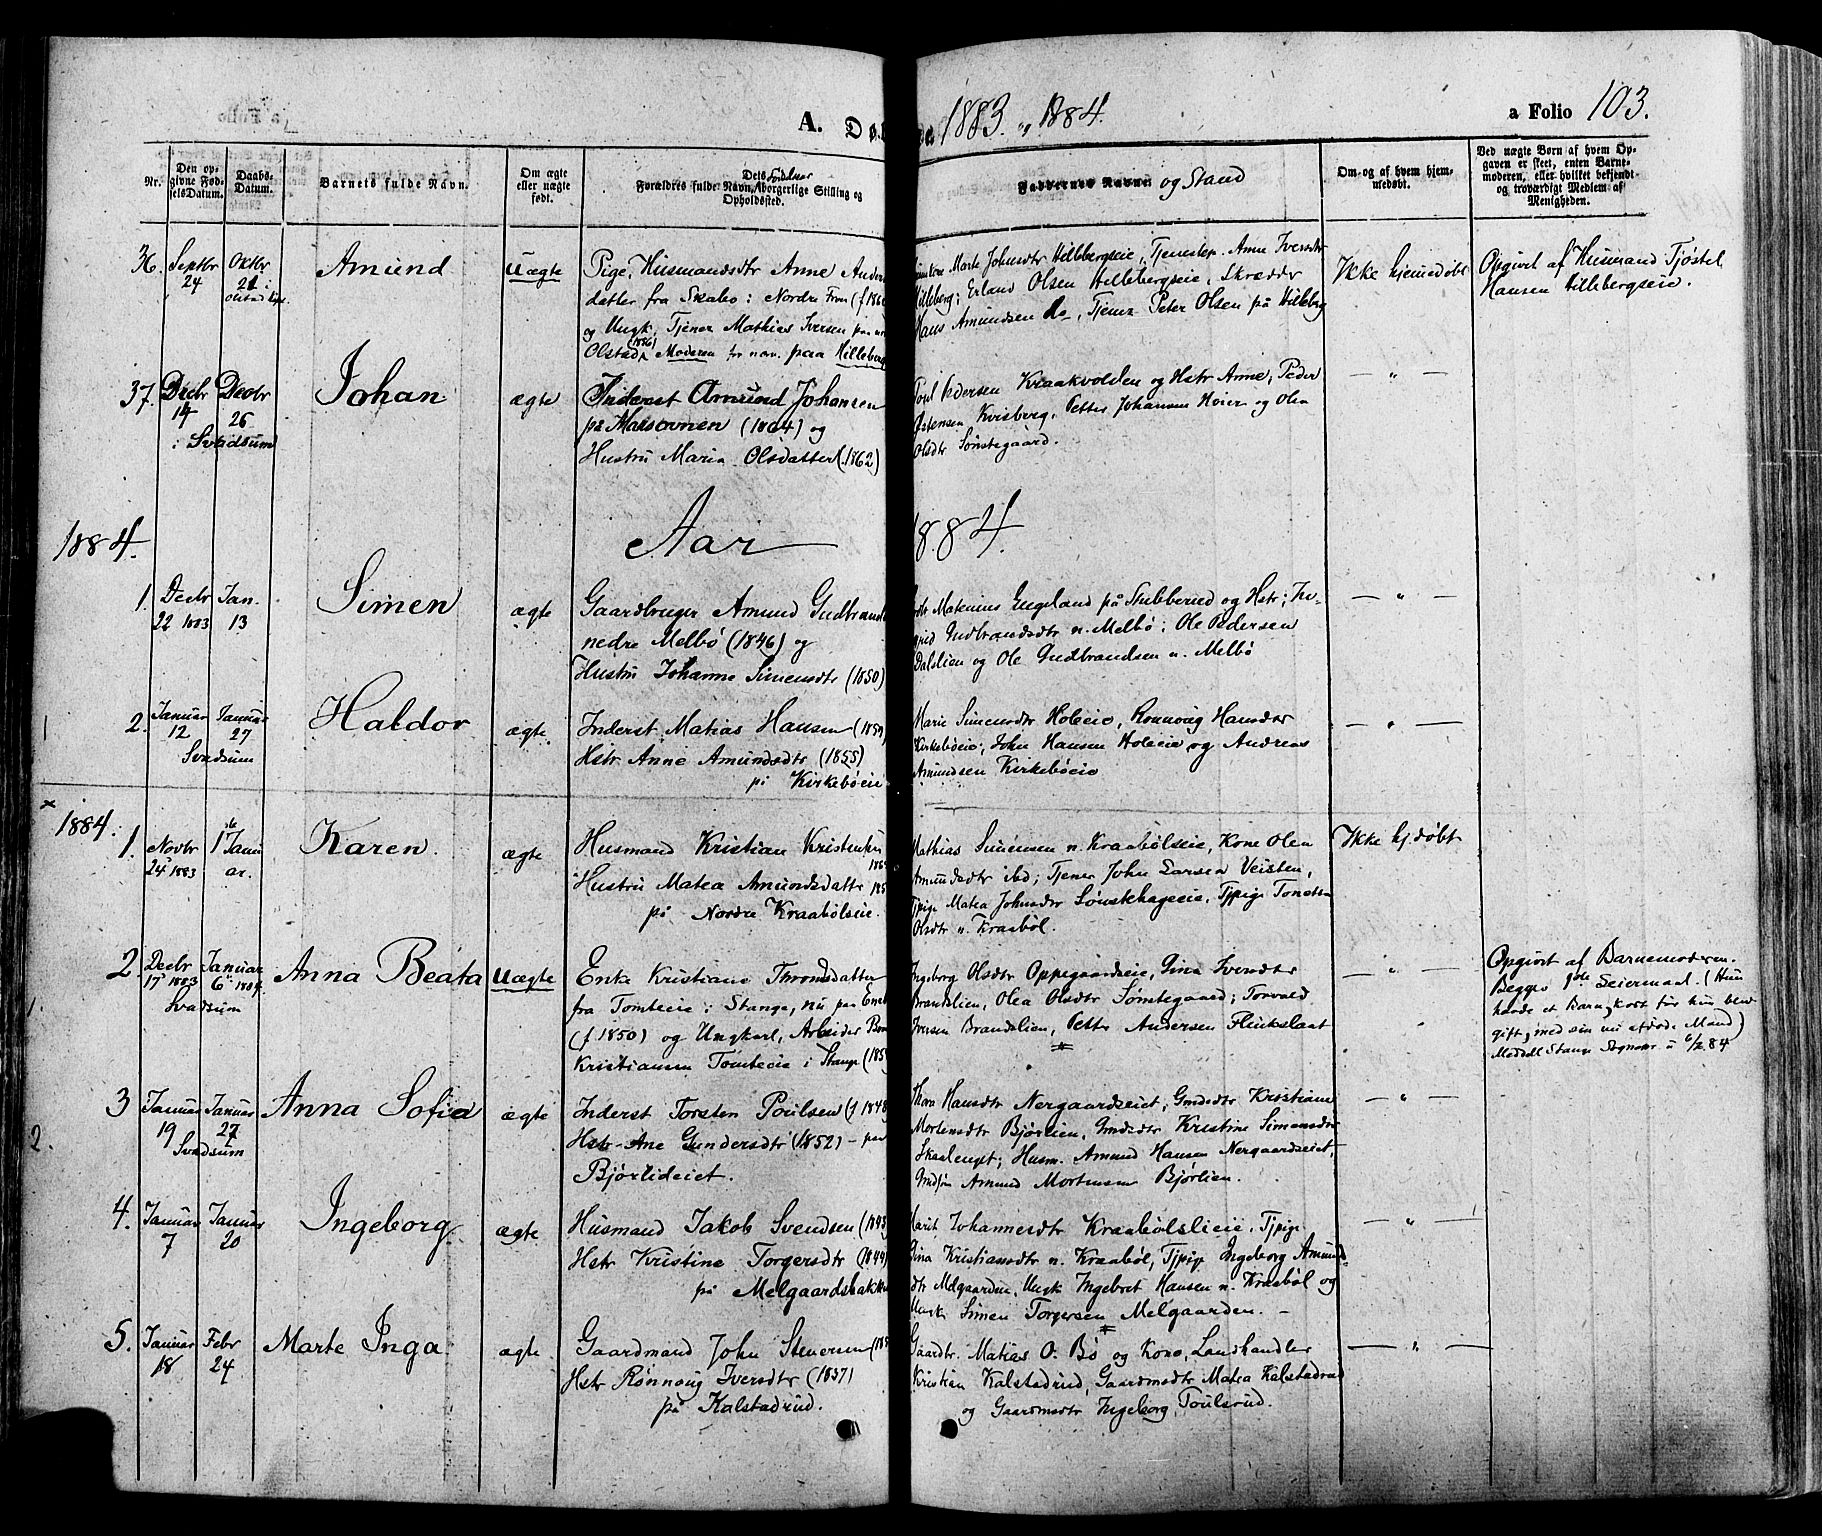 A. Dø
1883. og 1884.
a Folio 103.
Nr.
Den opgivne Fødsels Datum.
Daabs-Datum.
Barnets fulde Navn.
Om ægte eller nægte født.
Forældres fulde Navn, borgerlige Stilling og Opholdssted.
Dets Fødselsaar
Faddernes Navne og Stand
Om og af hvem hjemmedøbt.
Ved nægte Børn af hvem Opgaven er skeet, enten Barnemoderen, eller hvilket bekjendt og troværdigt Medlem af Menigheden.
36. Septbr 24 Oktbr 21 i Olstad Kpl. Amund Uægte
Pige, Husmandsdtr Anne Anders
datter fra Skabo i Nordre Fron
og Ungk. Tjener Mathias Iversen paa
Olstad (1856) Moderen for nærv. paa Hilleberg
Marte Johnsdtr Hillebergseie, Tjenestep. Anne Iversdtr
Hilleberg; Erland Olsen Hillebergseie, Skrædder
Hans Amundsen do, Tjener Peter Olsen på Hilleberg
Ikke hjemedøbt
Opgivet af Husmand Tjøstel
Hansen Hillebergseie.
37. Decbr 14 Decbr 26 i Svadsum Johan ægte
Inderst Amund Johansen
på (1864) og
Hustru Maria Olsdatter (1862)
Pedersen Kraakvolden og Hstr Anne; Peder
Østensen Kvisberg, Petter Johansen Høier og Olea
Olsdtr Sønstegaard.
— " —
1884. Aar 1884.
1. Decbr 22 1883 Jan. 13 Simen ægte
Gaardbruger Amund Gudbrands
nedre Melbø (1846) og
Hustru Johanne Simensdtr (1850)
Matenius Engeland på Stubberud og Hstr; In-
grid Gudbrandsdtr n. Melbø; Ole Pedersen
Dalslien og Ole Gudbrandsen n. Melbø
— " —
2. Januar 12 Januar 27 Svadsum Haldor ægte
Inderst Matias Hansen (1859)
Hstr Anne Amundsdtr (1855)
på Kirkebøeie
Marie Simensdtr Holeeie, Rønnoug Hansdtr
Kirkebøeie; John Hansen Holeeie og Andreas
Amundsen Kirkebøeie
— " —
× 1884.
1. Novbr 24 1883 1ste Januar. Karen. ægte
Husmand Kristian Kristensen
Hustru Matea Amundsdatter
på Nordre Kraabølseie.
Mathias Simensen n. Kraabølseie, Kone Olea
Amundsdtr ibd; Tjener John Larsen Veisten,
Tjpige Matea Johnsdtr Sønstehageeie, Tjpige Tonetta
Olsdtr n. Kraabøl.
Ikke hj.døbt
2. Decbr 17 1883 Januar 6 1884. Svadsum Anna Beata Uægte
Enke Kristiane Throndsdatter
fra Tomteeie i Stange, nu paa
(f. 1850) og Ungkarl, Arbeider
Kristiansen Tomteeie i Stange
Ingeborg Olsdtr Oppegaardseie, Gina Iversdtr
Brandslien, Olea Olsdtr Sønstegaard; Torvald
Iversen Brandslien, Petter Andersen Flickslaat
— " —
Opgivet af Barnemoderen.
Begges 1ste Leiermaal. (Hun
havde et Barn, kort før hun blev
gift, med sin nu afdøde Mand)
Meddelt Stange Sognepr. 6/2 84
3 Januar 19 Januar 27 Svadsum Anna Sofia ægte
Inderst Torsten Poulsen (f 1848
Hstr Ane Gundersdtr (1852) – paa
Bjørlideiet.
Thora Hansdtr Nergaardseiet, Gmdsdtr Kristiane
Mortensdtr Bjørlien, Gmdsdtr Kristine Simensdtr
Skaalenget; Husm. Amund Hansen Nergaardseiet,
Gmdsøn Amund Mortensen Bjørlien.
— " —
4. Januar 7 Januar 20 Ingeborg ægte
Husmand Jakob Svendsen (1843
Hstr Kristine Torgersdtr (1844)
på Melgaardsbakken
Marit Johannesdtr Kraabølslieie, Tjpige
Gina Kristiansdtr n. Kraabøl, Tjpige Ingeborg Amunds
dtr Melgaarden, Ungk Ingebret Hansen n. Kraabøl og
Ungk Simen Torgersen Melgaarden. –
— " —
5. Januar 18 Febr 24 Marte Inga ægte
Gaardmand John Stenersen
Hstr Rønnoug Iversdtr (1857)
på Kalstadrud.
Gaardbr. Matias O. Bø og Kone, Landhandler
Kristian Kalstadrud, Gaardmsdtr Matea Kalstadrud
og Gaardmsdtr Ingeborg Toulsrud.
— " —